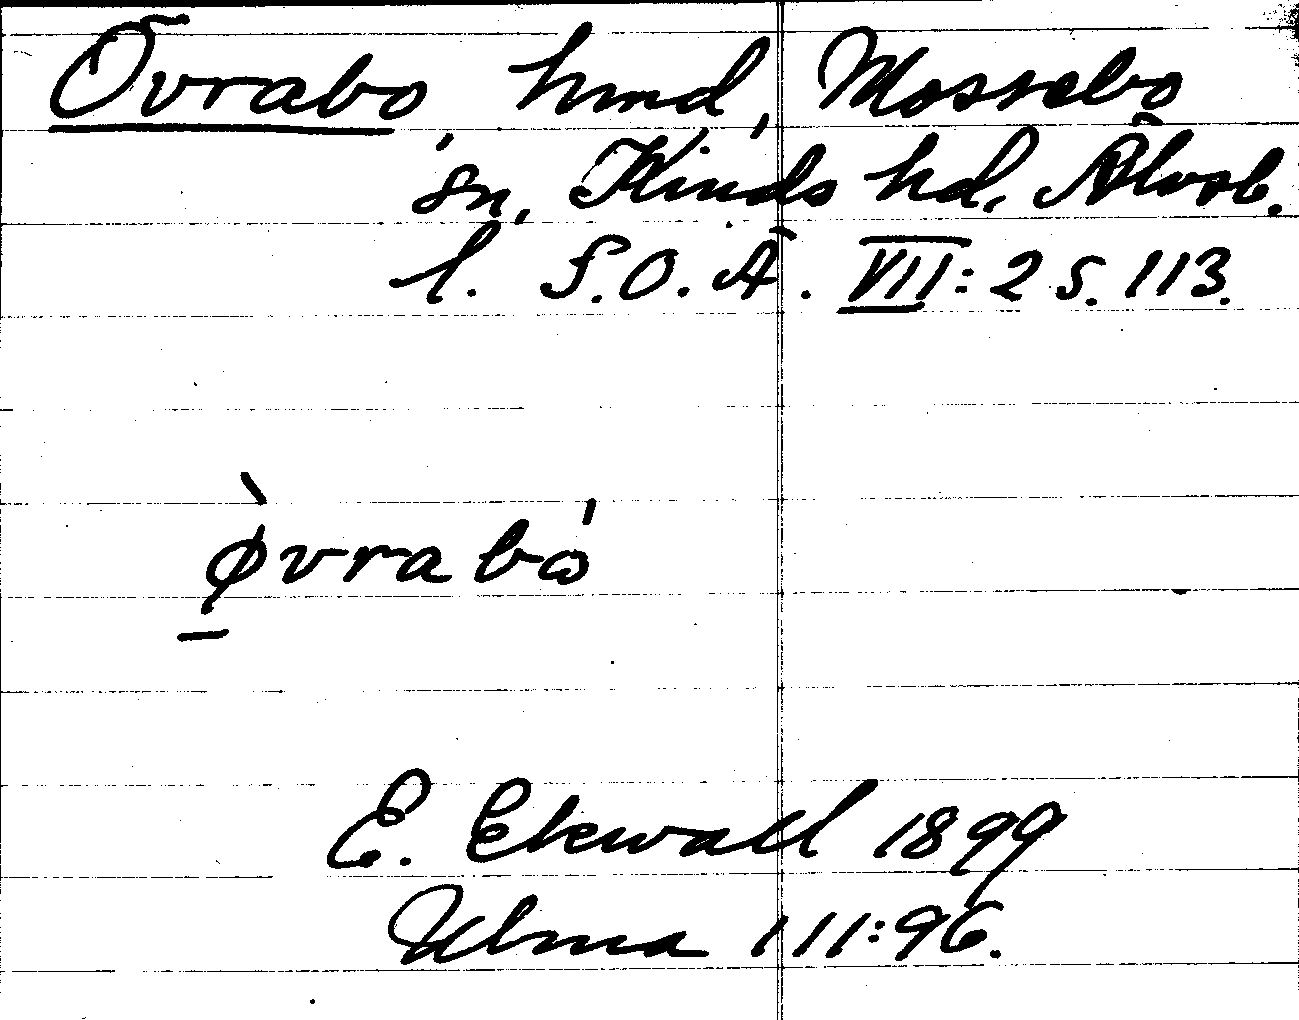 Övrabo hmd, Mossebo
sn, Kinds hd, Älvsb.
l. S.O.Ä. VII:2 S. 113.
ø̀vrabω̍
E. Ekwall 1899
Ulma 111:96.